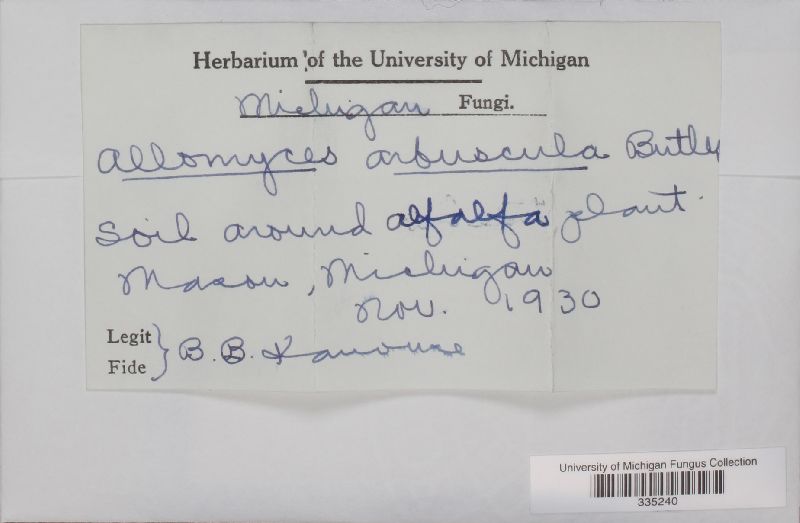 Herbarium of the University of Michigan
Michigan Fungi.
Allomyces arbuscula Butler
Soil around alfalfa plant.
Mason, Michigan
Nov. 1930
Legit
Fide
B. B. Kanouse
University of Michigan Fungus Collection
335240